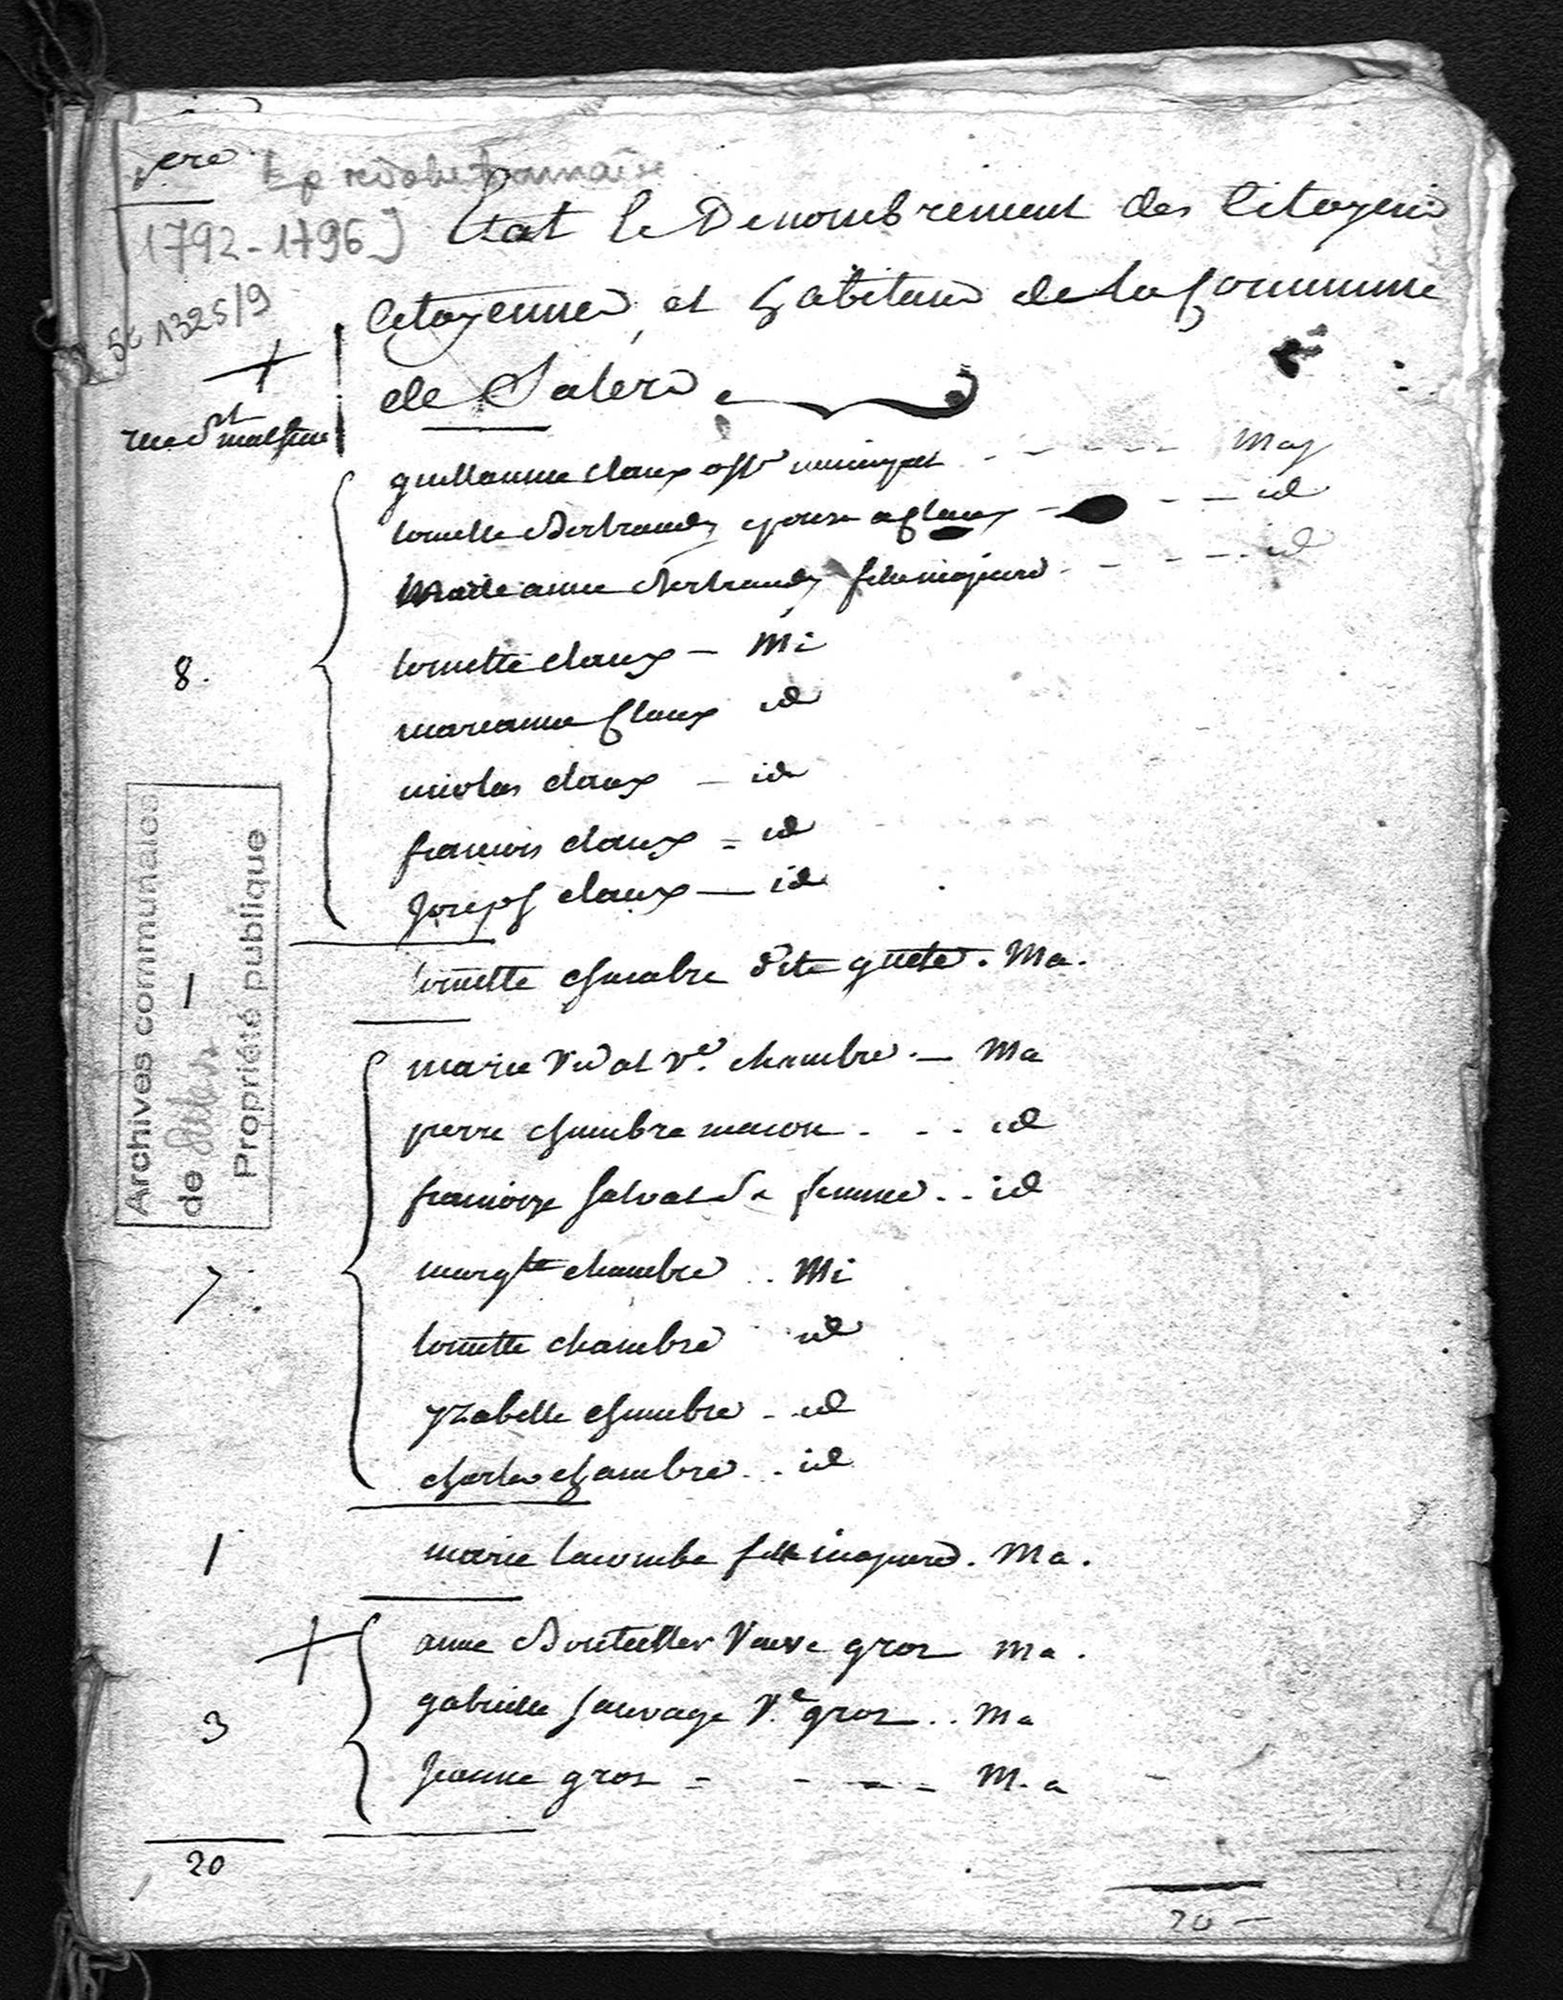 1ere Ep revolutionnaire
[1792-1796]
5C 1325/9
Etat le Denombrement des Citoyens
Citoyennes et habitans de la Commune
de Salers
rue St mathieu
guillaume claux offr municipal - - - - - Maj
tounette Bertrandy epouse a Claux - - - id
Marie anne Bertrandy fille majeure - - - - id
8.
tounette claux - Mi
marianne Claux id
nicolas claux - id
francois claux = id
Joseph claux - id
1
tounette chambre dite guete. Ma.
Archives communales
de Salers
Propriété publique
marie Vidal Ve. chambre. - Ma
pierre chambre macon. - - id
francoise Salvat Sa femme. . id
7
margte chambre . . Mi
tounette chambre id
yzabelle chambre - id
charles chambre. . id
1
marie lacombe fille majeure. Ma.
anne Bouteiller Veuve gros Ma.
3
gabrielle Sauvage Ve gros . . Ma
Jeanne gros = - - - M. a
20
20 -